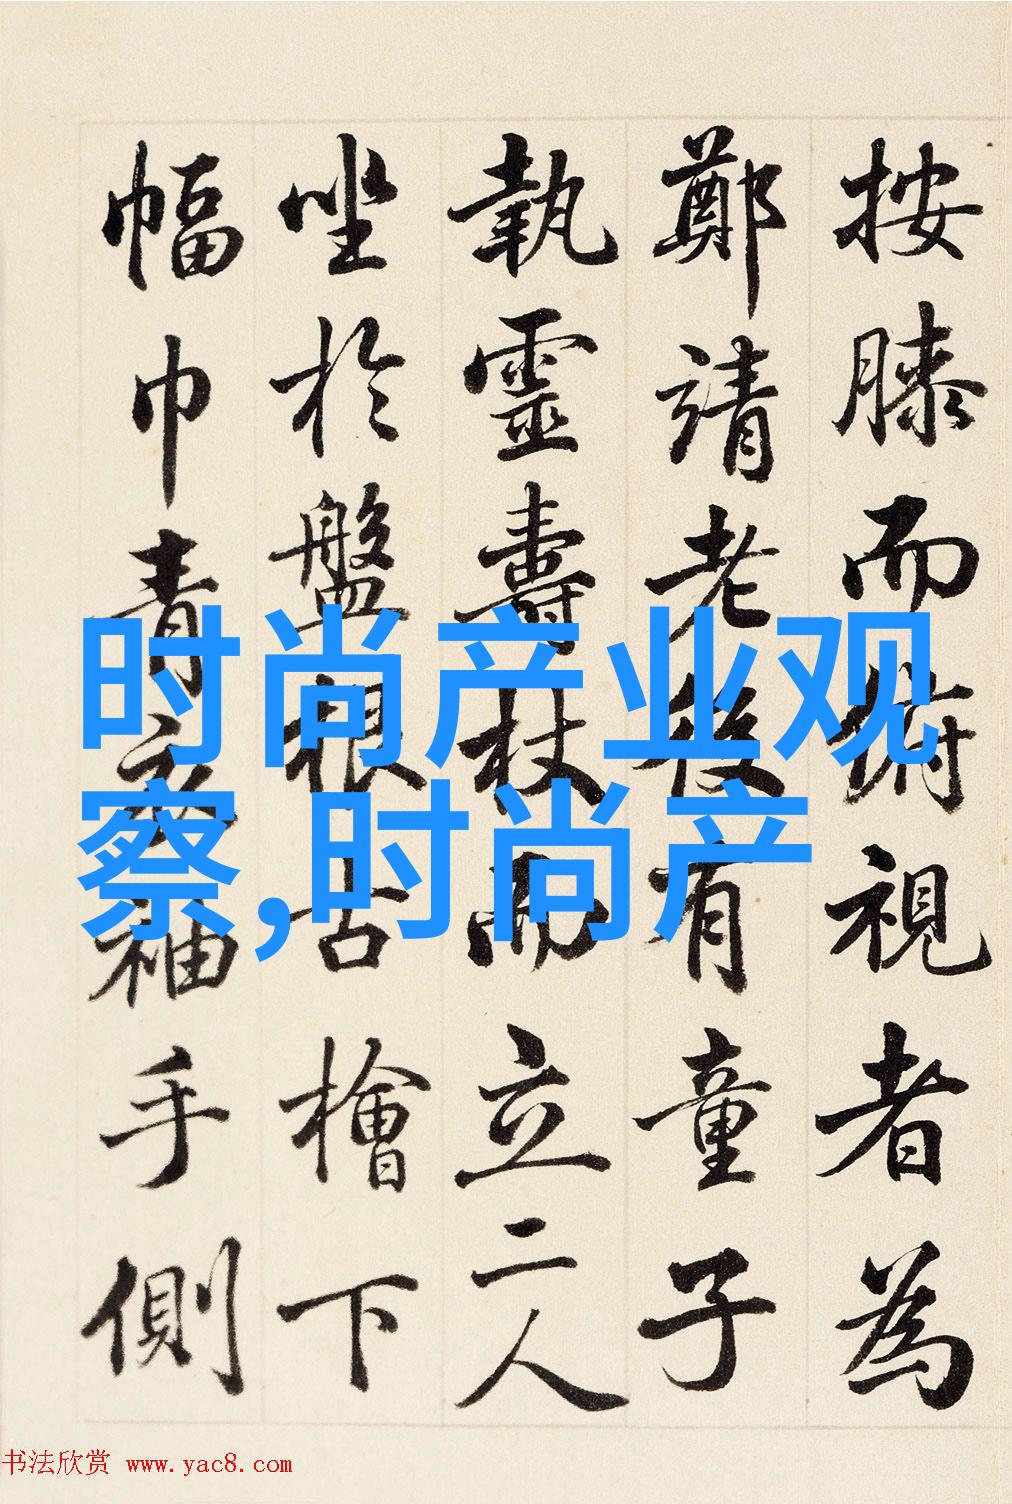 按膝而俯視者為
鄭靖老後有童子
執靈壽杖而立二人
坐於盤根古檜下
幅巾青衣袖手側
时尚产业观
察,时尚产
书法欣赏 www.yac8.com